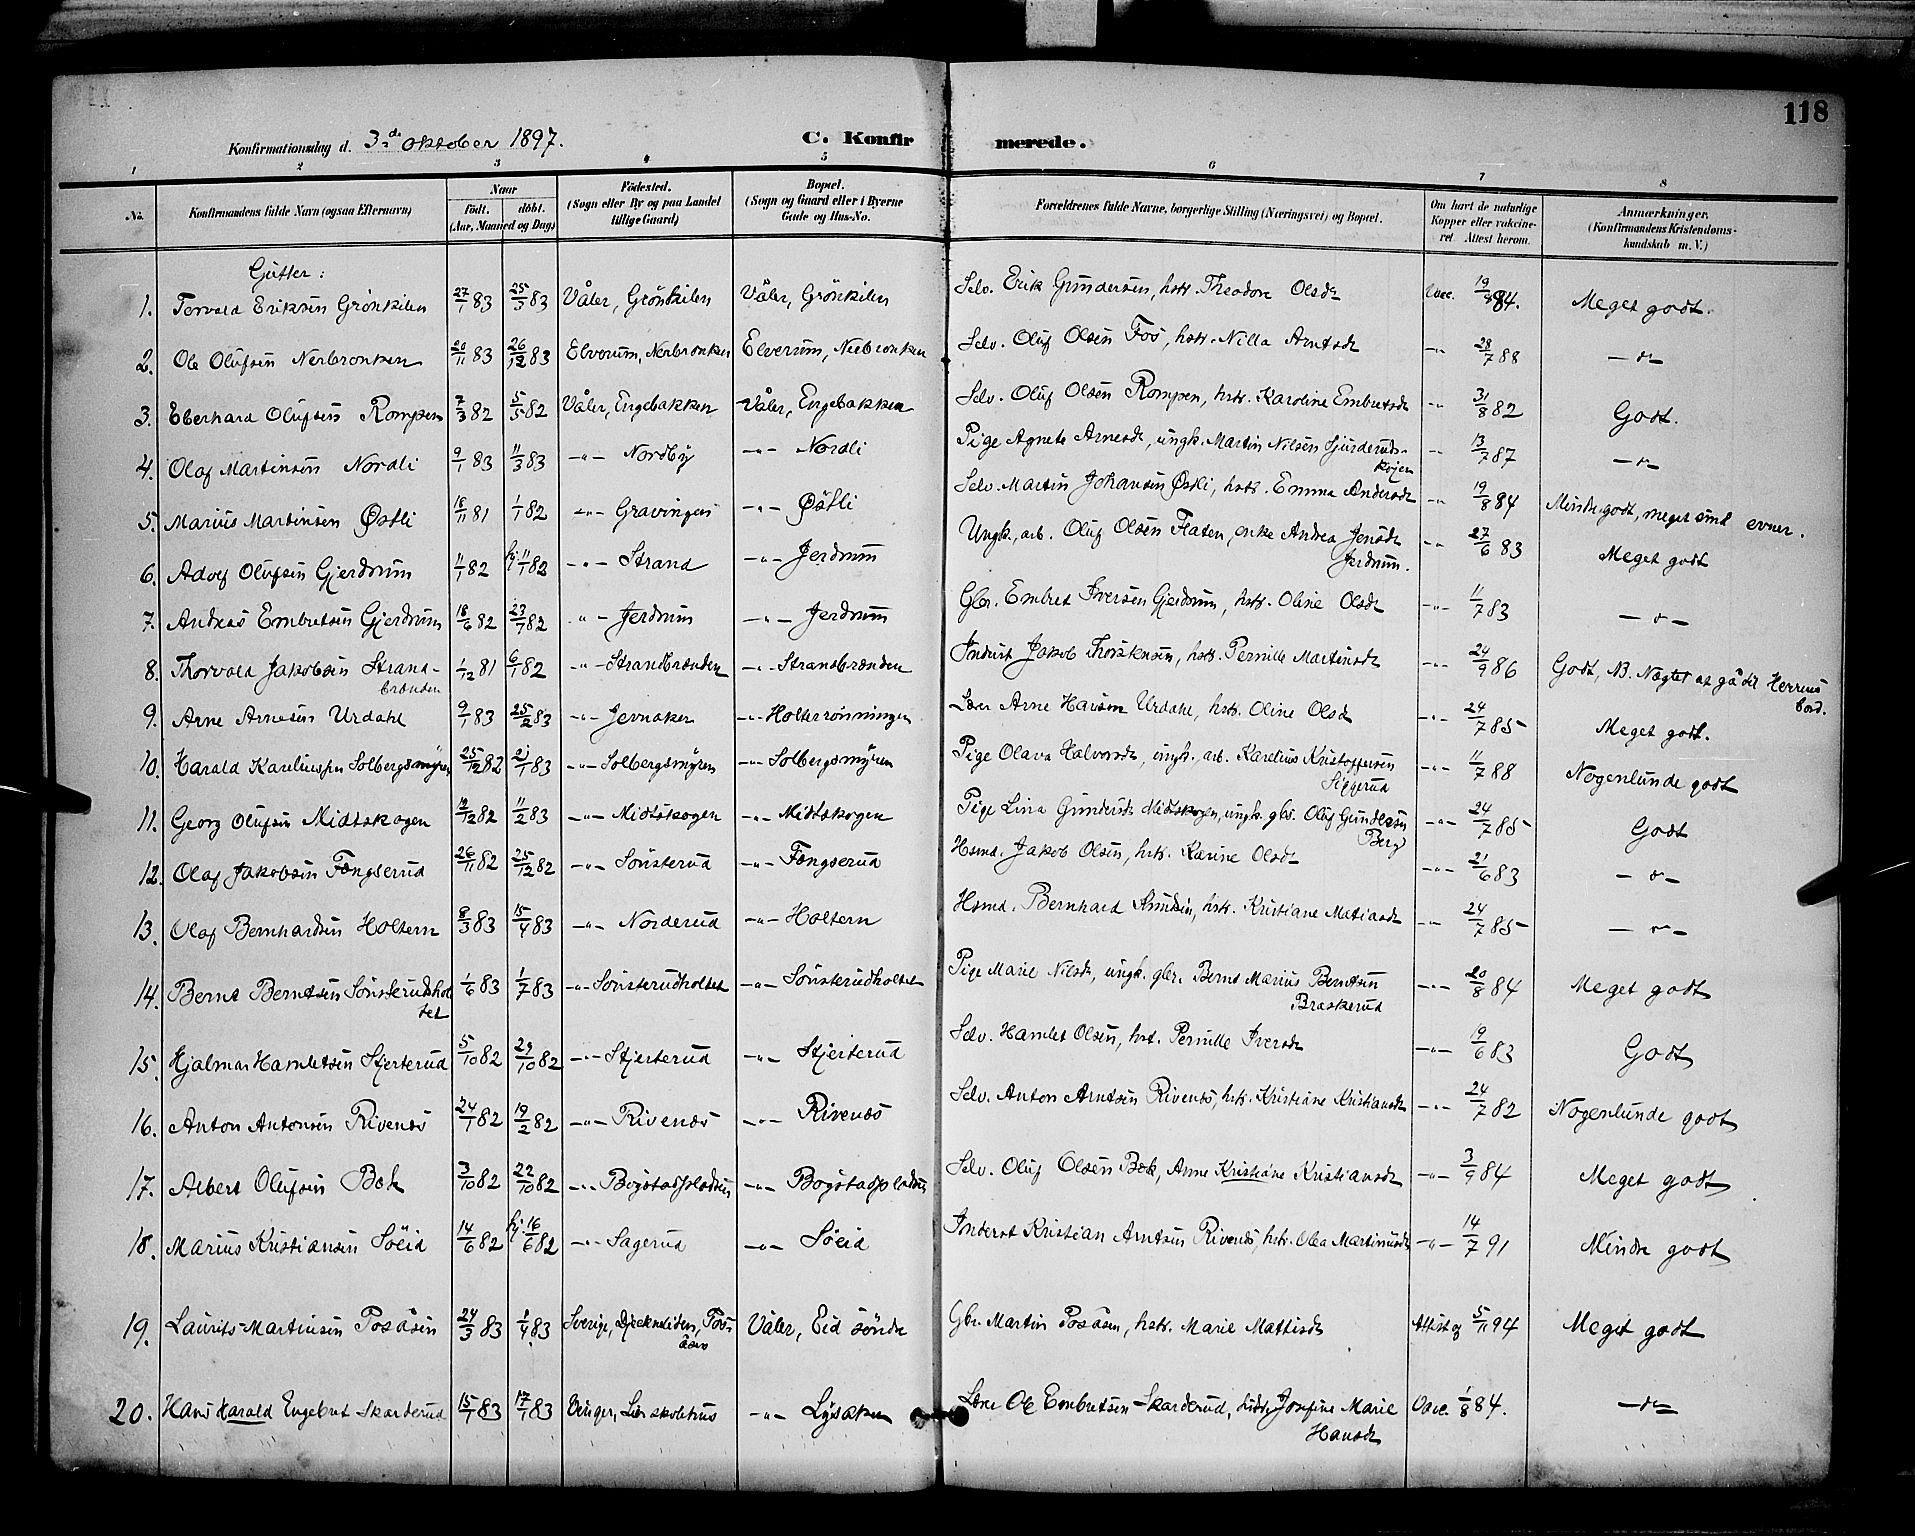 118
Konfirmationsdag d. 3die oktober 1897.
C. Konfirmerede.
1 2 3 4 5 6 7 8
No.
Konfirmandens fulde Navn (ogsaa Efternavn)
Naar
født. døbt.
(Aar, Maaned og Dag)
Fødested.
(Sogn eller By og paa Landet
tillige Gaard)
Bopæl.
(Sogn og Gaard eller i Byerne
Gade og Hus-No.
Forældrenes fulde Navne, borgerlige Stilling (Næringsvei) og Bopæl.
Om havt de naturlige
Kopper eller vakcine-
ret Attest herom.
Anmærkninger.
(Konfirmandens Kristendoms-
kundskab m. V.)
Gutter:
1. Torvald Eriksen Grönkilen 27/1 83 25/3 83 Våler, Grönkilen Våler, Grönkilen Selv. Erik Gundersen, hstr. Theodore Olsdr Vacc. 19/8 84. Meget godt.
2. Ole Olufsen Nerbronken 20/11 83 26/12 83 Elverum, Nerbronken Elverum, Nerbronken Selv. Oluf Olsen Fos, hstr. Nilla Arntsdr -"- 28/7 88 -"-
3. Eberhard Olufsen Rompen 7/3 82 5/5 82 Våler, Engebakken Våler, Engebakken Selv. Oluf Olsen Rompen, hstr. Karoline Embretsdr -"- 31/8 82 Godt.
4. Olaf Martinsen Nordli 9/1 83 11/3 83 -"- Nordby -"- Nordli Pige Agnete Arnesdr, ungk. Martin Nilsen Gjurderuds-
kojen -"- 13/7 87 -"-
5. Marius Martinsen Østli 18/11 81 1/1 82 -"- Gravingen -"- Østli Selv. Martin Johansen Østli, hstr. Emma Andersdr -"- 19/8 84 Mindre godt, meget små evner.
6. Adolf Olufsen Gjerdrum 11/1 82 hj. 11/1 82 -"- Strand -"- Jerdrum Ungk., arb. Oluf Olsen Flaten, enke Andrea Jensdr
Jerdrum. -"- 27/6 83 Meget godt
7. Andreas Embretsen Gjerdrum 18/6 82 23/7 82 -"- Jerdrum -"- Jerdrum Gbr. Embret Iversen Gjerdrum, hstr. Oline Olsdr -"- 11/7 83 -"-
8. Thorvald Jakobsen Strand-
brænden 1/12 81 6/1 82 -"- Strandbrænden -"- Strandbrænden Inderst Jakob Thorstensen, hstr. Pernille Martinsdr -"- 24/9 86 Godt, NB. Nægtet at gå til Herrens
bord.
9. Arne Arnesen Urdahl 9/1 83 25/2 83 -"- Jevnaker -"- Holterrønningen Lærer Arne Hansen Urdahl, hstr. Oline Olsdr -"- 24/7 85 Meget godt.
10. Harald Kareliussen Solbergsmyren 25/12 82 21/1 83 -"- Solbergsmyren -"- Solbergsmyren Pige Olava Halvorsdr, ungk. arb. Karelius Kristoffersen
Siggerud -"- 11/7 88 Nogenlunde godt
11. Georg Olufsen Midtskogen 12/12 82 11/2 83 -"- Midtskogen -"- Midtskogen Pige Lina Gundersdr Midtskogen, ungk. gbr. Oluf Gundersen
Berg -"- 24/7 85 Godt
12. Olaf Jakobsen Fængserud 26/11 82 25/12 82 -"- Sønsterud -"- Fængserud Hsmd. Jakob Olsen, hstr. Karine Olsdr -"- 21/6 83 -"-
13. Olaf Bernhardsen Holtern 8/3 83 15/4 83 -"- Norderud -"- Holtern Hsmd. Bernhard Amundsen, hstr. Kristiane Matiasdr -"- 24/7 85 -"-
14. Bernt Berntsen Sønsterudshol
tet 1/6 83 1/7 83 -"- Sønsterudholtet -"- Sønsterudholtet Pige Marie Nilsdr, ungk. gbr. Bernt Marius Berntsen
Braskerud -"- 20/8 84 Meget godt
15. Hjalmar Hamletsen Stjerterud 5/10 82 29/10 82 -"- Stjerterud -"- Stjerterud Selv. Hamlet Olsen, hst. Pernille Iversdr -"- 19/6 83 Godt
16. Anton Antonsen Rivenæs 24/1 82 19/2 82 -"- Rivenæs -"- Rivenæs Selv. Anton Arntsen Rivenæs, hstr. Kristiane Kristiansdr -"- 24/7 82 Nogenlunde godt
17. Albert Olufsen Bæk 3/10 82 22/10 82 -"- Bogstadpladsen -"- Bogstadpladsen Selv. Oluf Olsen Bæk, Anne Kristiane Kristiansdr -"- 3/9 84 Meget godt
18. Marius Kristiansen Söeid 14/6 82 hj. 16/6 82 -"- Sagerud -"- Söeid Inderst Kristian Arntsen Rivenæs, hstr. Olea Martinusdr -"- 14/7 91 Mindre godt
19. Laurits Martinsen Posåsen 24/3 83 1/4 83 Sverige, Pos
åsen Våler, Eid söndre Gbr. Martin Posåsen, hstr. Marie Mattisdr Attest af 5/11 94 Meget godt
20. Hans Harald Engebret Skarderud 15/1 83 17/1 83 Vinger, -"- Lysaken Lærer Ole Embretsen Skarderud, Josefine Marie
Hansdr Vacc. 1/8 84. -"-